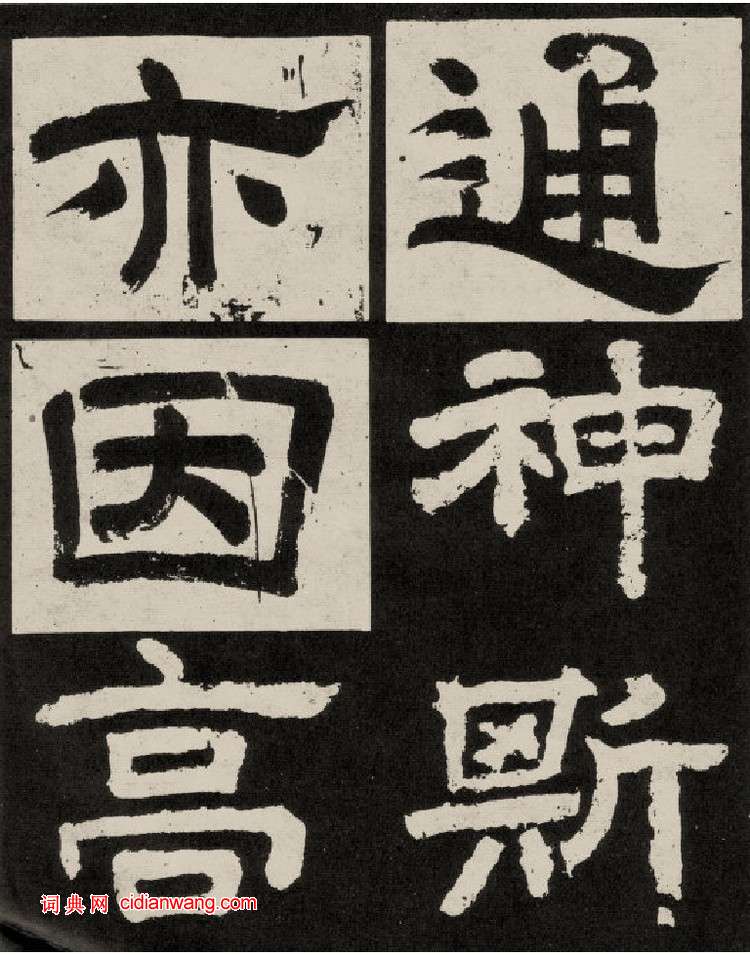 通神斯
亦因高
词典网 cidianwang.com